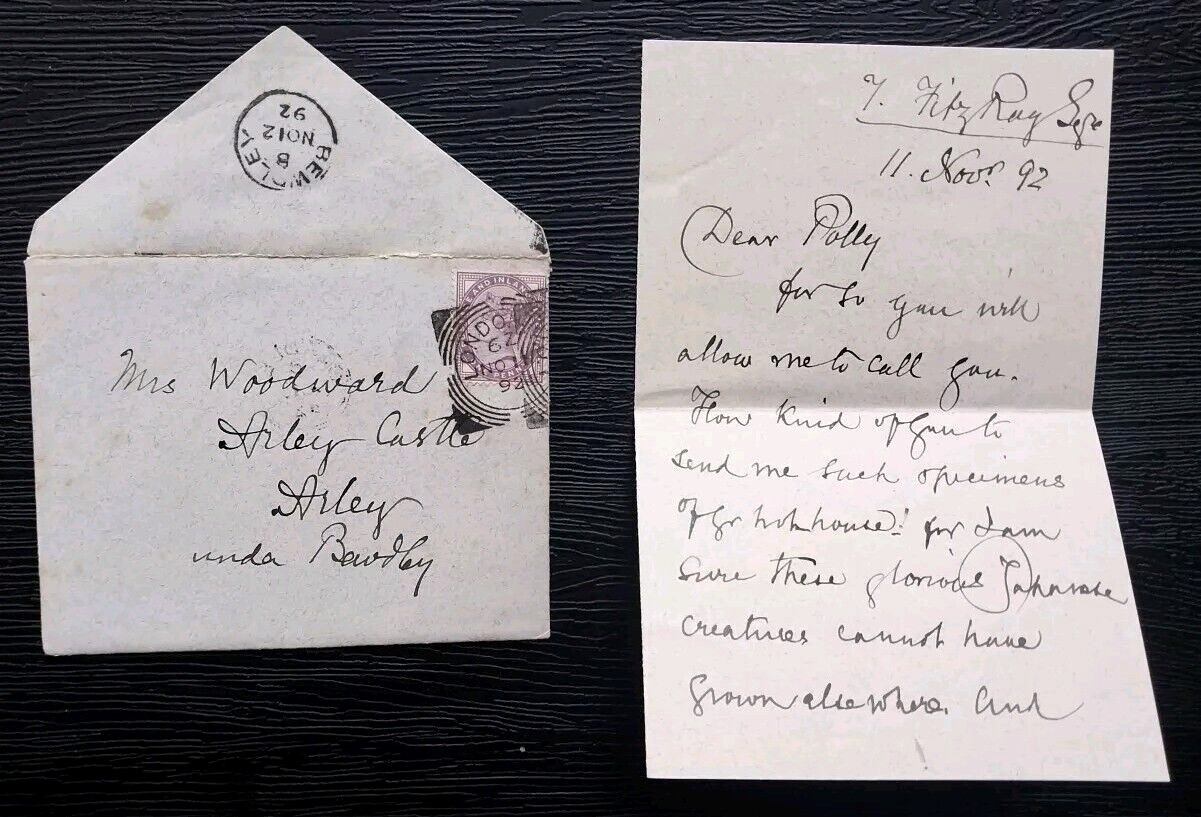 BEWDLEY
B
NO 12
92
E AND INLAN
LONDON
92
Mrs Woodward
Arley Castle
Arley
under Bewdley
7. Fitz Roy Sqre
11. Novr. 92
Dear Polly
for so you will
allow me to call you.
How kind of you to
send me such specimens
of yr hothouse! for I am
sure these glorious Japanese
creatures cannot have
grown elsewhere. And